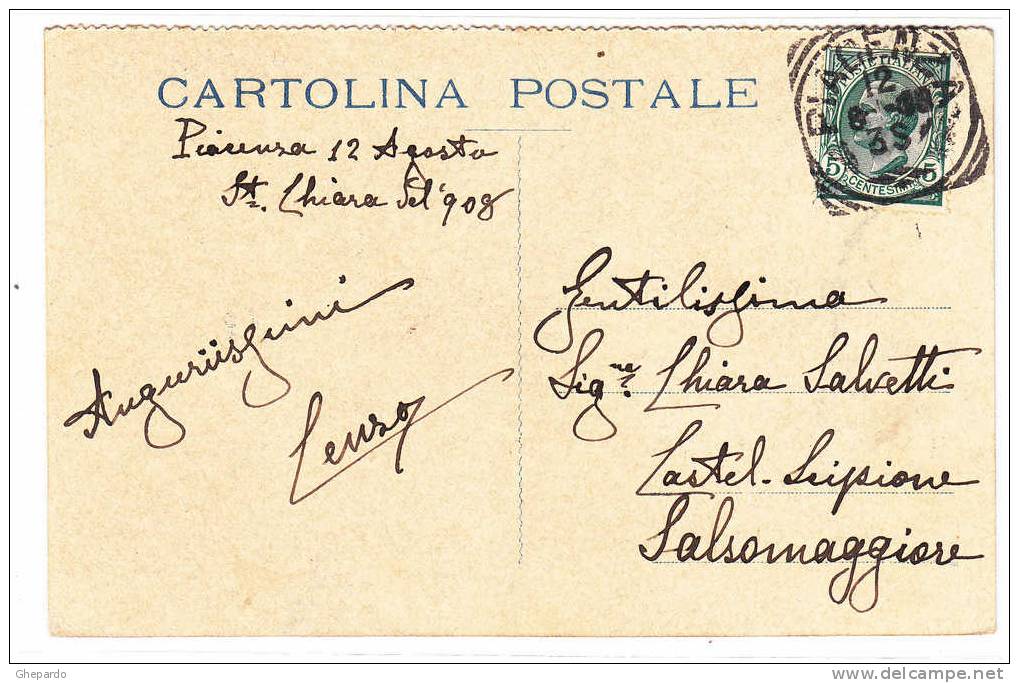 CARTOLINA POSTALE
Piacenza 12 Agosto
St. Chiara del '908
Auguriissimi
Gentilissima
Sig.ne Chiara Salvetti
Castel-Scipione
Salsomaggiore
PIACENZA
12
8-08
5 CENTESIMI 5
Ghepardo
delcampe.net